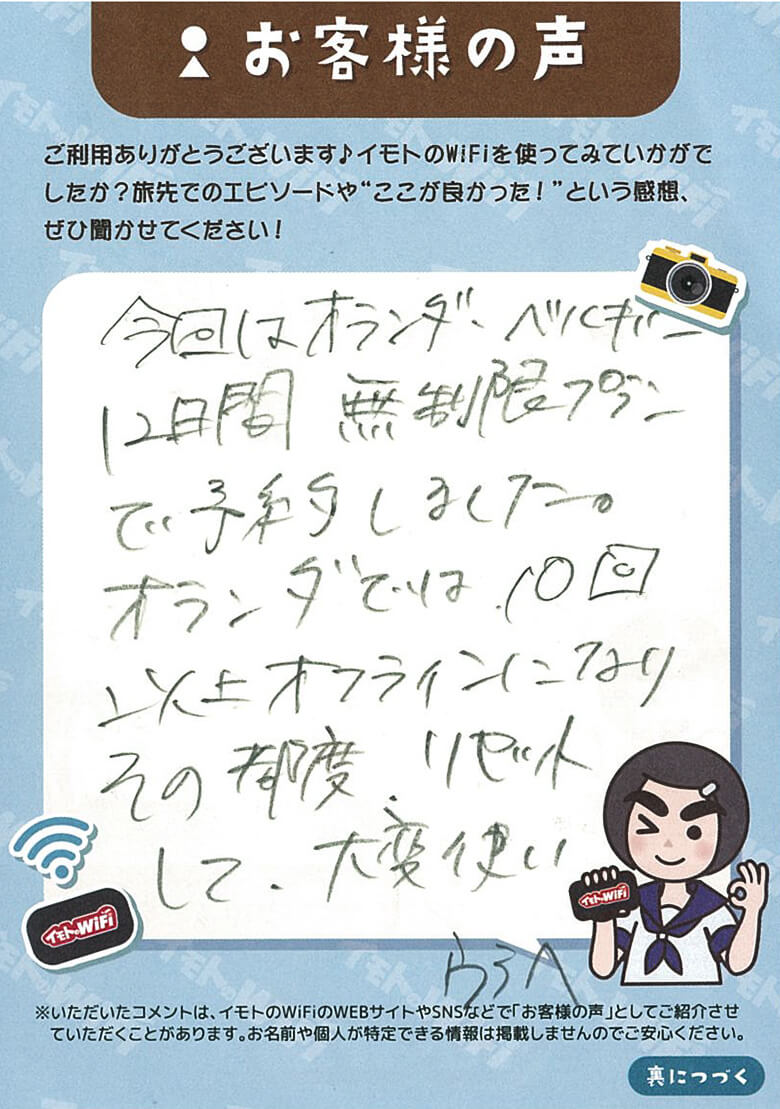 お客様の声
ご利用ありがとうございます♪イモトのWiFiを使ってみていかがで
したか？旅先でのエピソードや“ここが良かった！”という感想、
ぜひ聞かせてください！
今回はオランダ、ベルギー
12日間 無制限プラン
で予約しました。
オランダでは、10回
以上オフラインになり
その都度、リセット
して、大変使い
ウラへ
イモトのWiFi
イモトのWiFi
※いただいたコメントは、イモトのWiFiのWEBサイトやSNSなどで「お客様の声」としてご紹介させ
ていただくことがあります。お名前や個人が特定できる情報は掲載しませんのでご安心ください。
裏につづく